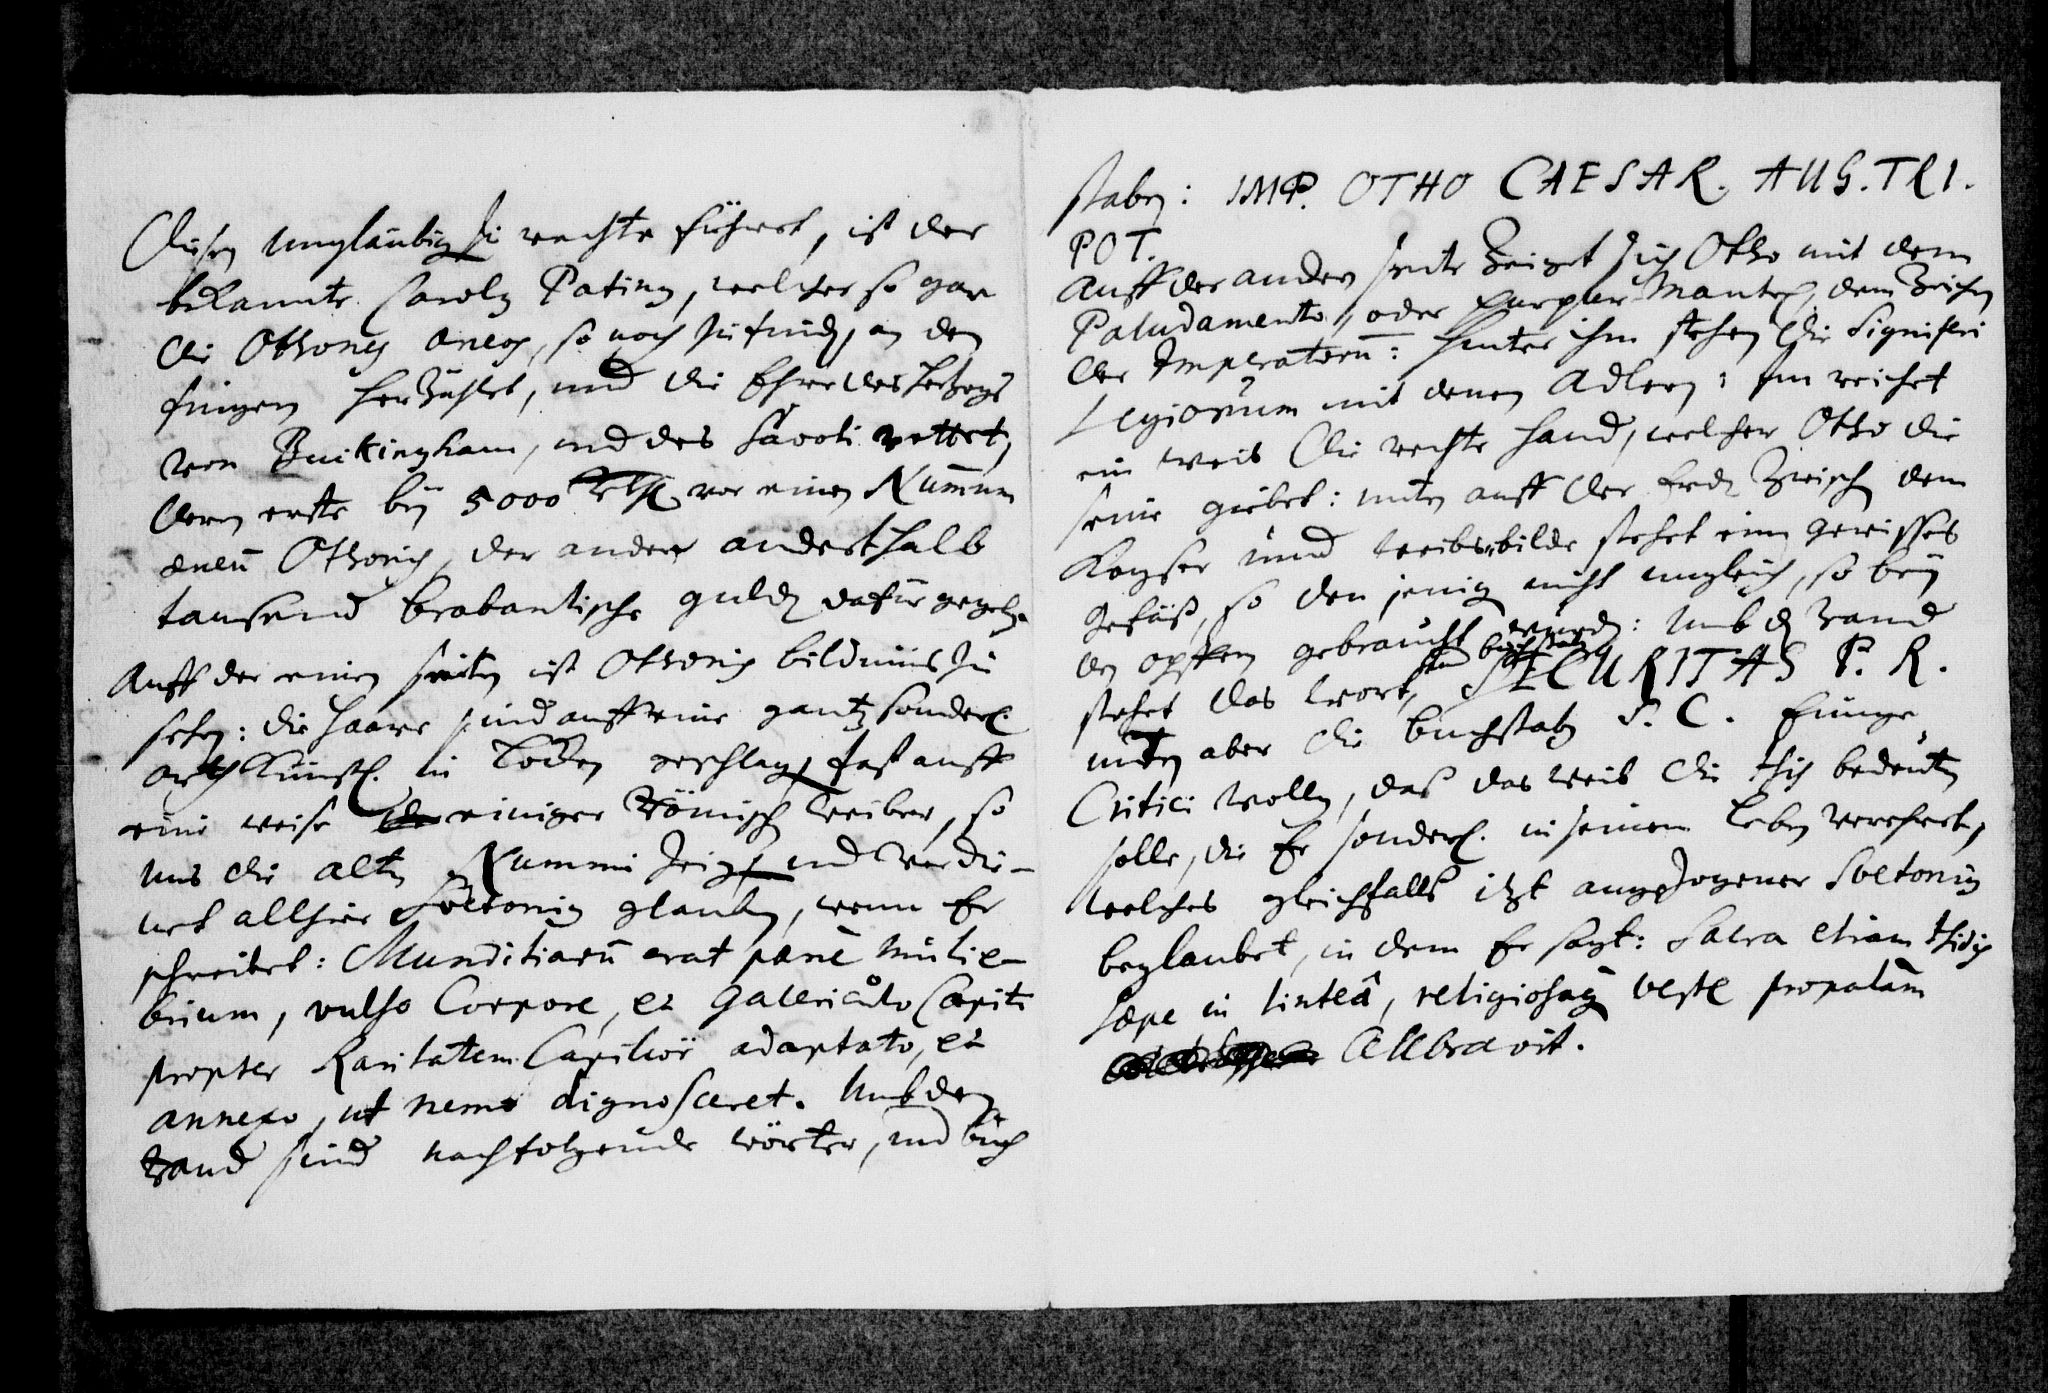 Diesen ungläubigen zu rechte führet, ist der
bekannte Carolus Patinus, welcher so gar
die Othones æneos, so noch zu finden, an den
fingern herzählet, und die Ehre des Hertzogs
von Buckingham, und des Savoti rettet,
deren erste bey 5000 Rthl. vor einen Nummum
æneum Othonis, der ander anderthalb
tausend brabantische gulden dafür gegeben.
Auff der einen seiten ist Othonis bildnüs zu
sehen: die Haare sind auff eine gantz sonderl.
arth Künstl. in Locken geschlagen, fast auff
eine weise einiger Römischen weiber, so
uns die alten Nummi zeigen, und verdie-
net allhier Svetonius glauben, wenn Er
schreibet: Munditiarum erat pæne mulie-
brium, vulso Corpore, et Galericulo Capiti
propter Raritatem Capillorum adaptato, et
annexo, ut nemo dignosceret. Umb den
rand sind nachfolgende wörter, und buch
staben: IMP. OTHO CAESAR. AUG. TRI.
POT.
Auff der andern seite zeiget sich Otho mit dem
Paludamento, oder purpur Mantel, dem Zeichen
der Imperatorum: hinter ihm stehen die Signiferi
Legionum mit denen Adlern: ihm reichet
ein weib die rechte hand, welcher Otho die
seine giebet: unten auff der Erden zwischen dem
Kayser und weibesbilde stehet ein gewisses
gefäß, so den jenigen nicht ungleich, so bey
den opffern gebraucht wurden: Umb den rand
stehet das wort, und buchstaben SECURITAS P. R.
unten aber die buchstaben S. C. Einige
Critici wollen, daß das weib die Isis bedeuten
solle, die Er sonderl. in seinem Leben verehret,
welches gleichfalls itzt angezogener Svetonius
beglaubet, in dem Er sagt: Sacra etiam Isidis
sæpe in linteâ, religiosaque veste propalam
celebravit.